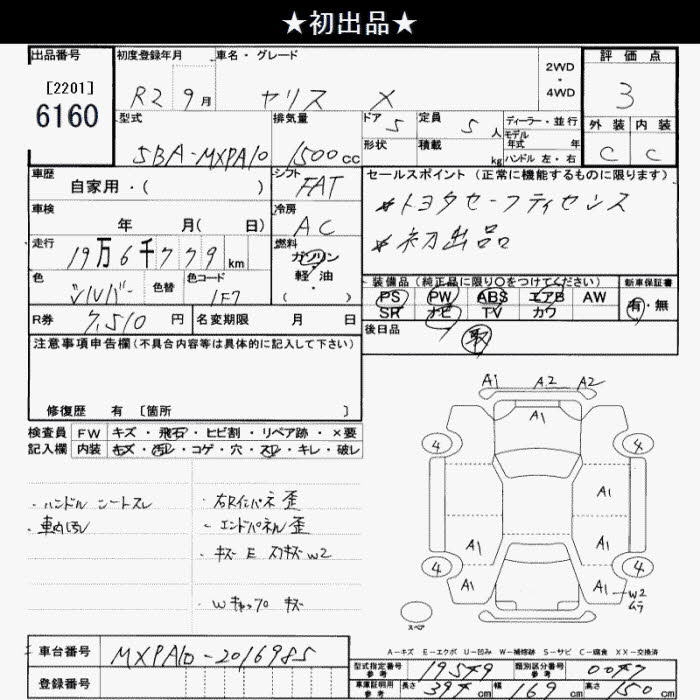 ★初出品★
出品番号
[2201]
6160
初度登録年月
R2 9月
車名・グレード
ヤリス X
2WD
・
4WD
評価点
3
型式
5BA-MXPA10
排気量
1500cc
ドア 5
定員 5人
形状
積載 kg
ディーラー・並行
モデル
年式 年
ハンドル 左・右
外装 内装
C C
車歴
自家用・( )
シフト
FAT
車検
年 月( 日)
冷房
AC
走行
19万6千779km
燃料
ガソリン
軽・油
( )
色
シルバー
色替
色コード
1F7
R券 7,510円
名変期限 月 日
セールスポイント(正常に機能するものに限ります)
*トヨタセーフティセンス
*初出品
装備品(純正品に限り○をつけてください)
PS PW ABS エアB AW
SR ナビ TV カワ
新車保証書
有・無
後日品
取
注意事項申告欄(不具合内容等は具体的に記入して下さい)
修復歴 有 [箇所 ]
検査員 FW キズ・飛石・ヒビ割・リペア跡・×要
記入欄 内装 キズ・汚レ・コゲ・穴・スレ・キレ・破レ
・ハンドル シートスレ
・車内汚レ
・右Rインパネ歪
・エンドパネル歪
・キズ E スリキズ W2
・Wキャップ0 キズ
A1 A2 A2
A1
4 4
A1
A1 A1
4 4
A1 A1 W2
ムラ
スペア
A-キズ E-エクボ U-凹み W-補修跡 S-サビ C-腐食 XX-交換済
車台番号 MXPA10-2016985
登録番号
型式指定番号
参考
19579
類別区分番号
参考
0047
車庫証明用
参考
長さ 394cm 幅 169cm 高さ 150cm